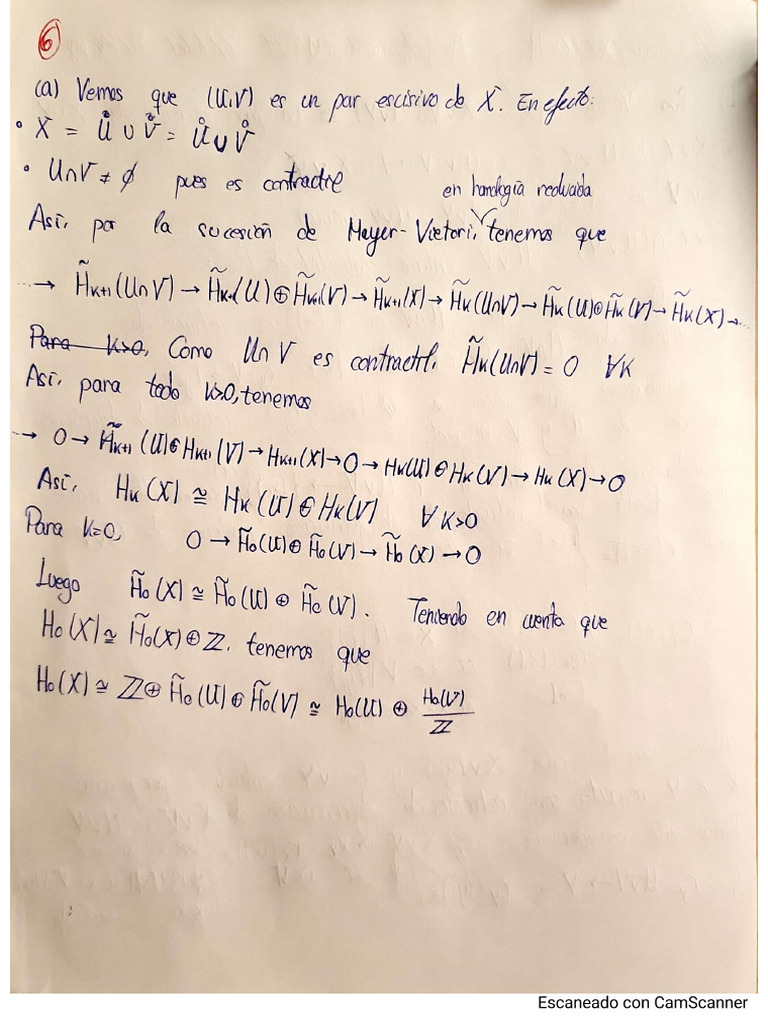 6
(a) Vemos que (U,V) es un par escisivo de X. En efecto:
• X = Ů ∪ V̊ = Ů ∪ V̊
• U∩V ≠ ∅ pues es contractil
en homología reducida
Así, por la sucesión de Mayer-Vietori, tenemos que
... → H̃k+1(U∩V) → H̃k+1(U) ⊕ H̃k+1(V) → H̃k+1(X) → H̃k(U∩V) → H̃k(U) ⊕ H̃k(V) → H̃k(X) → ...
Para k>0, Como U∩V es contractil, H̃k(U∩V) = 0 ∀k
Así, para todo k>0, tenemos
... → 0 → H̃k+1(U) ⊕ Hk+1(V) → Hk+1(X) → 0 → Hk(U) ⊕ Hk(V) → Hk(X) → 0
Así, Hk(X) ≅ Hk(U) ⊕ Hk(V) ∀ k>0
Para k=0, 0 → H̃o(U) ⊕ H̃o(V) → H̃o(X) → 0
Luego H̃o(X) ≅ H̃o(U) ⊕ H̃o(V). Teniendo en cuenta que
Ho(X) ≅ H̃o(X) ⊕ ℤ, tenemos que
Ho(X) ≅ ℤ ⊕ H̃o(U) ⊕ H̃o(V) ≅ Ho(U) ⊕ Ho(V)/ℤ
Escaneado con CamScanner